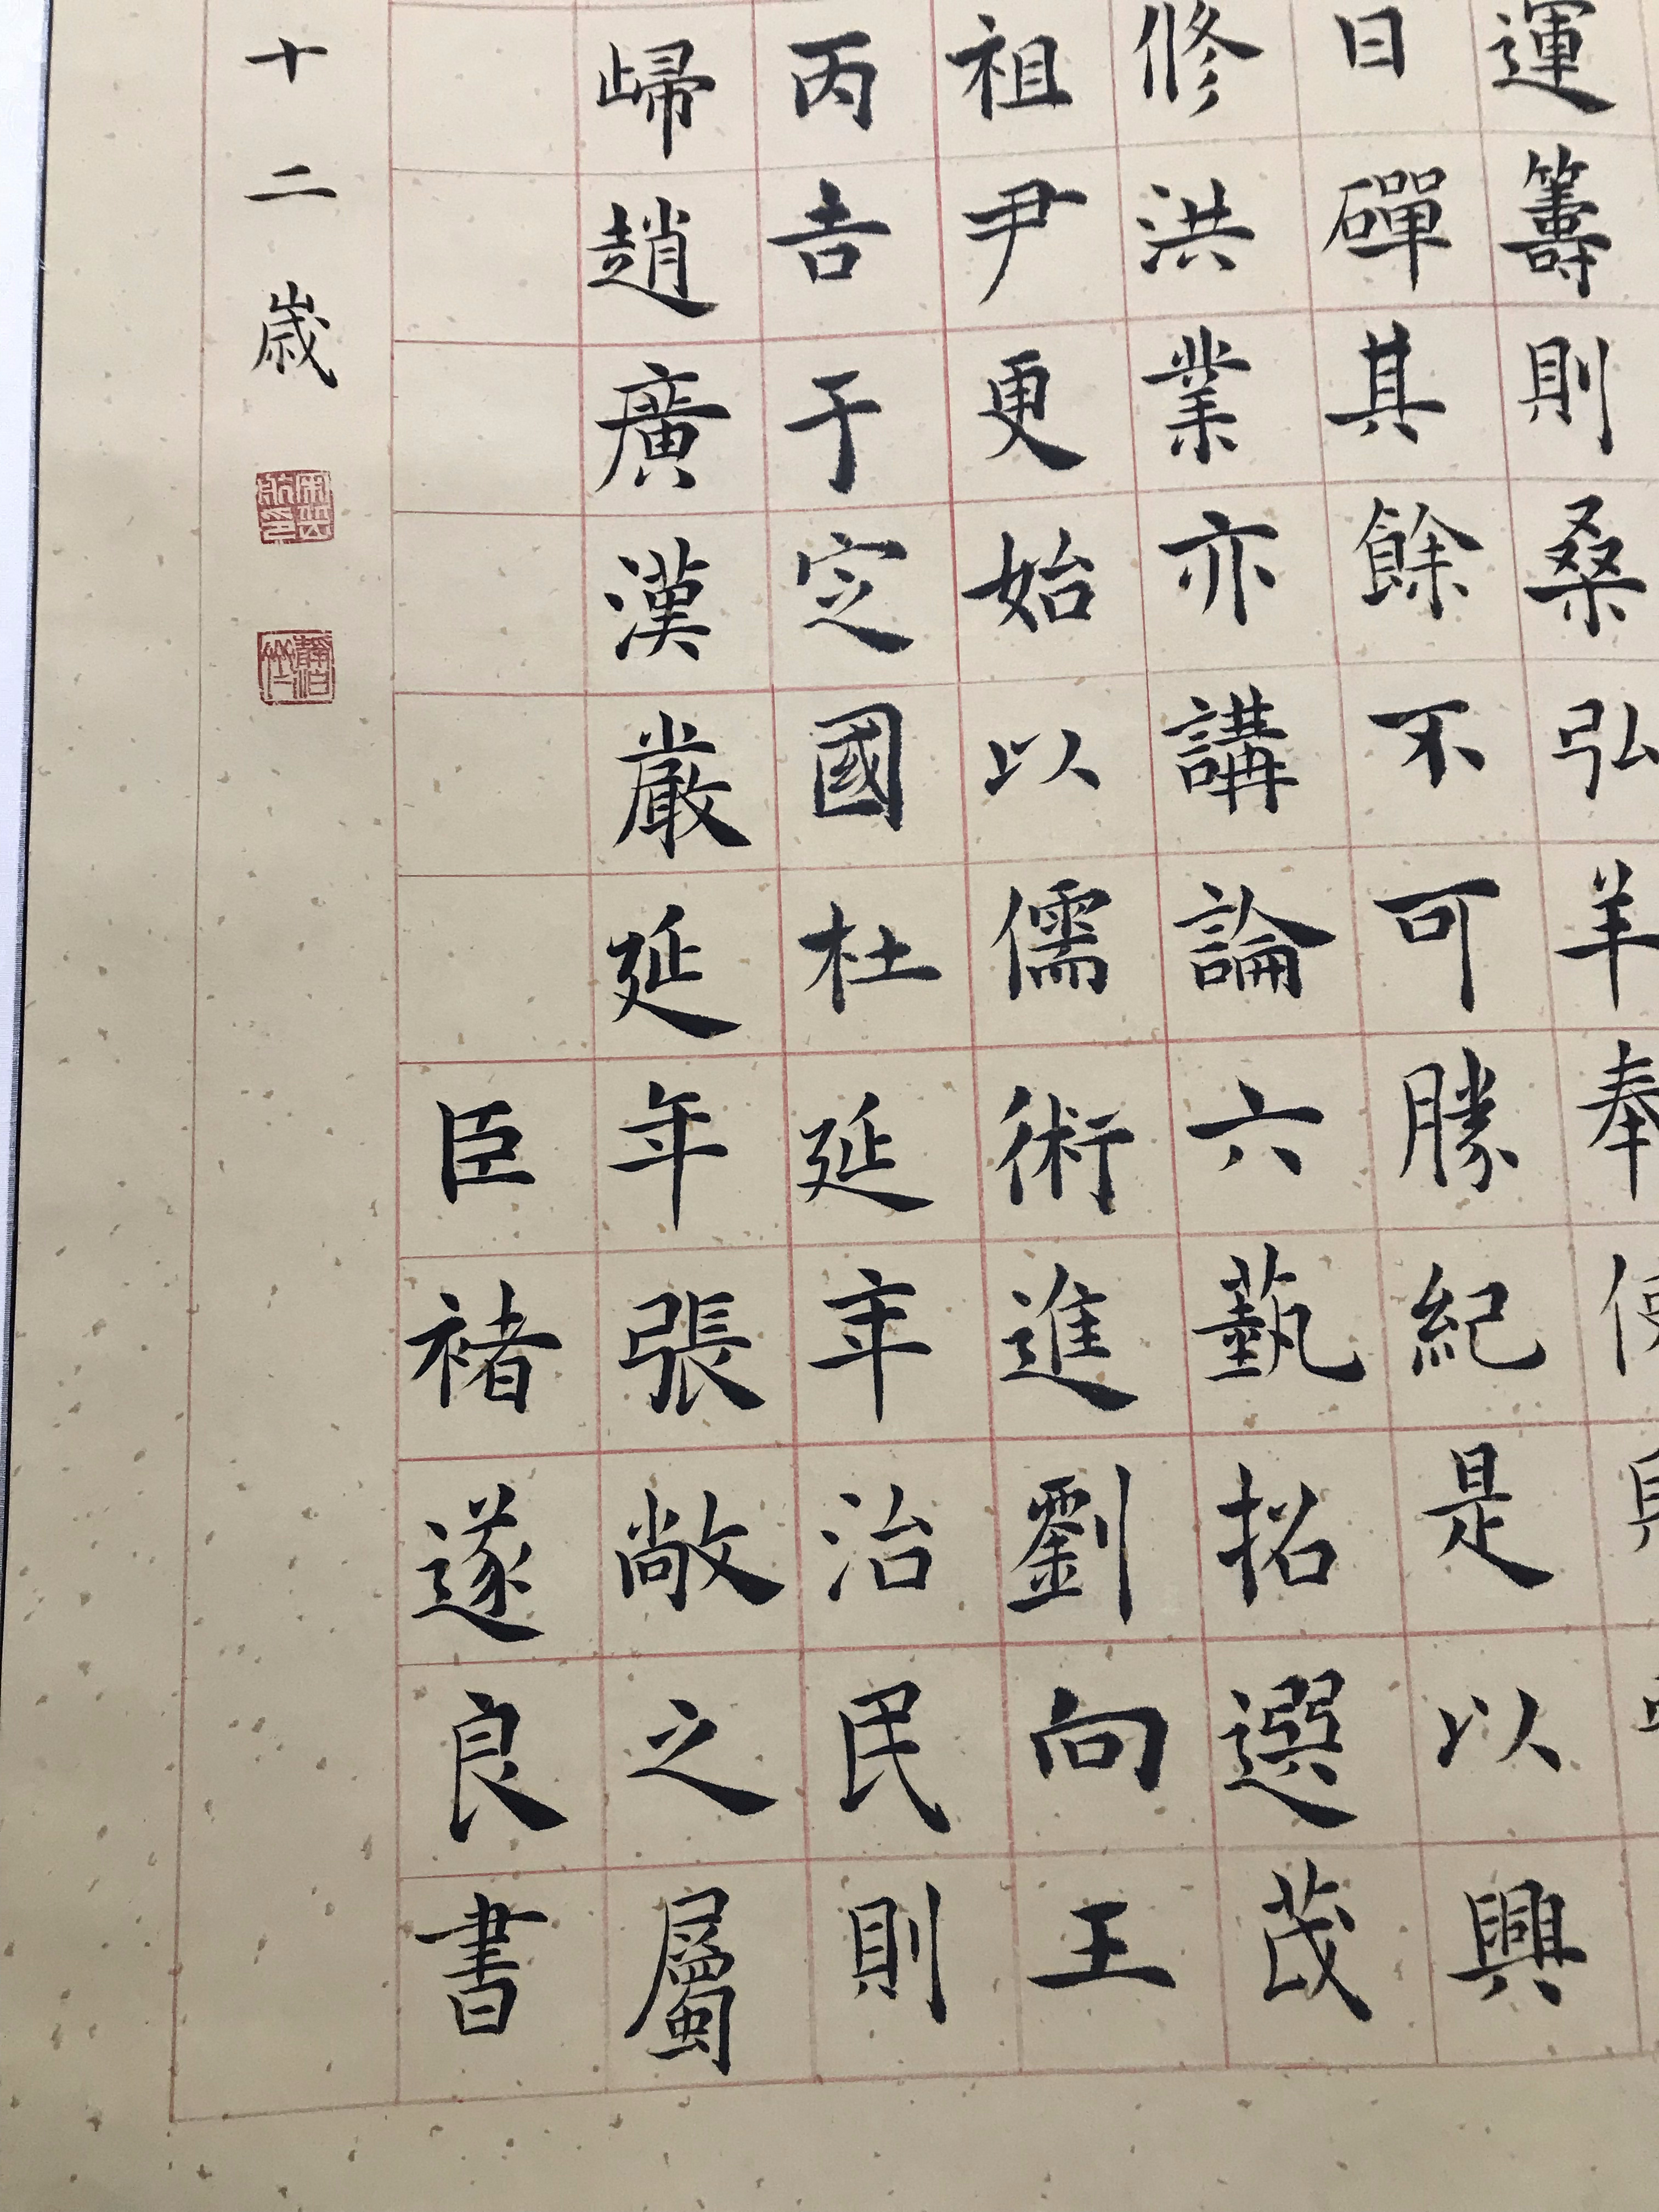 運籌則桑弘羊奉使
日磾其餘不可勝紀是以興
修洪業亦講論六藝招選茂
祖尹更始以儒術進劉向王
丙吉于定國杜延年治民則
歸趙廣漢嚴延年張敞之屬
臣褚遂良書
十二歲